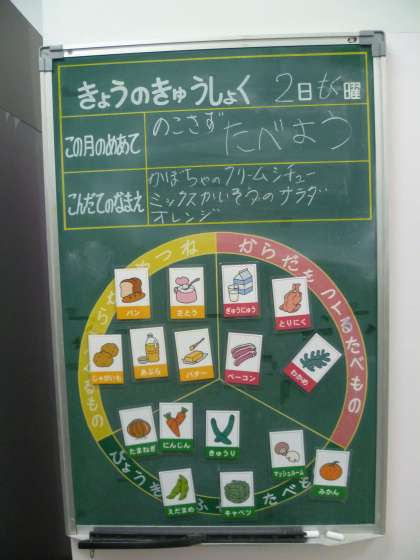 きょうのきゅうしょく 2日 曜
この月のめあて のこさず たべよう
こんだてのなまえ かぼちゃのクリームシチュー
ミックスかいそうのサラダ
オレンジ
からだを つくるたべもの
パン さとう ぎゅうにゅう とりにく
じゃがいも あぶら バター ベーコン わかめ
たまねぎ にんじん きゅうり マッシュルーム みかん
えだまめ キャベツ